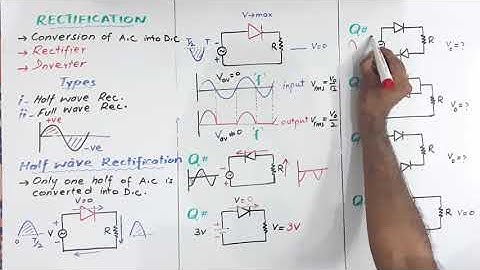 RECTIFICATION
→ Conversion of A.C into D.C
→ Rectifier
→ Inverter
Types
i- Half wave Rec.
ii- Full wave Rec.
+ve
-ve
Half Wave Rectification
→ Only one half of A.C is
converted into D.C.
V=0
V
R
0 T/2
T/2
V→max
T/2 T
R
V=0
Vav=0
'f'
input Vrms=V0/√2
output Vrms=V0/2
Vav≠0
'f'
Q#
R
Q#
V=0
3V
R
V=3V
Q#
R
V0=?
Q
R
V0=?
Q#
R
V0=?
Q
R
V=0